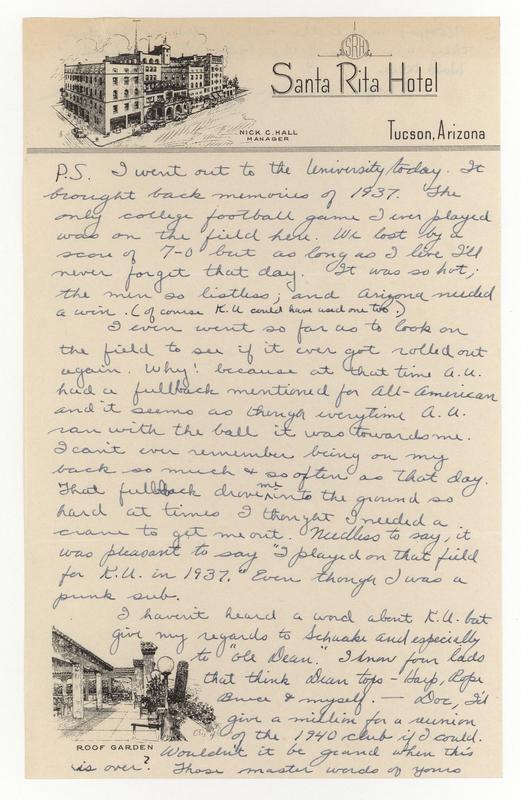 SRH
Santa Rita Hotel
NICK C. HALL
MANAGER
Tucson, Arizona
P.S. I went out to the University today. It
brought back memories of 1937. The
only college football game I ever played
was on the field here. We lost by a
score of 7-0 but as long as I live I'll
never forget that day. It was so hot;
the men so listless; and Arizona needed
a win. (of course K.U. could have used one too.)
I even went so far as to look on
the field to see if it ever got rolled out
again. Why! because at that time A.U.
had a fullback mentioned for All-American
and it seems as though everytime A.U.
ran with the ball it was towards me.
I can't ever remember being on my
back so much & so often as that day.
That fullback drove me into the ground so
hard at times I thought I needed a
crane to get me out. Needless to say, it
was pleasant to say "I played on that field
for K.U. in 1937." Even though I was a
punk sub.
I haven't heard a word about K.U. but
give my regards to Schaake and especially
to "ole Dean." I know four lads
that think Dean tops - Harp, Pope
Bruce & myself. — Doc, I'd
give a million for a reunion
of the 1940 club if I could.
ROOF GARDEN
Wouldn't it be grand when this
is over? Those master words of yours